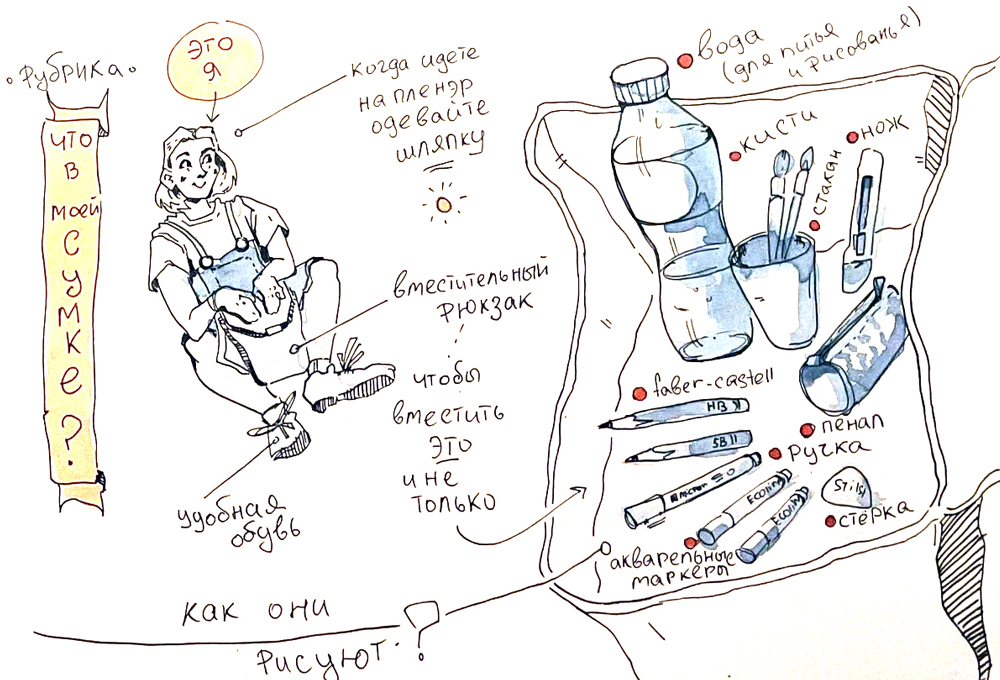 Рубрика
ЧТО
В
моей
Сумке?
это
я
когда идете
на пленэр
одевайте
шляпку
вместительный
рюкзак
чтобы
вместить
это
и не
только
удобная
обувь
вода
(для питья
и рисованья)
кисти
нож
стакан
faber-castell
HB
5B
пенал
ручка
Ecoline
Ecoline
Stilsy
стёрка
акварельные
маркеры
как они
рисуют?